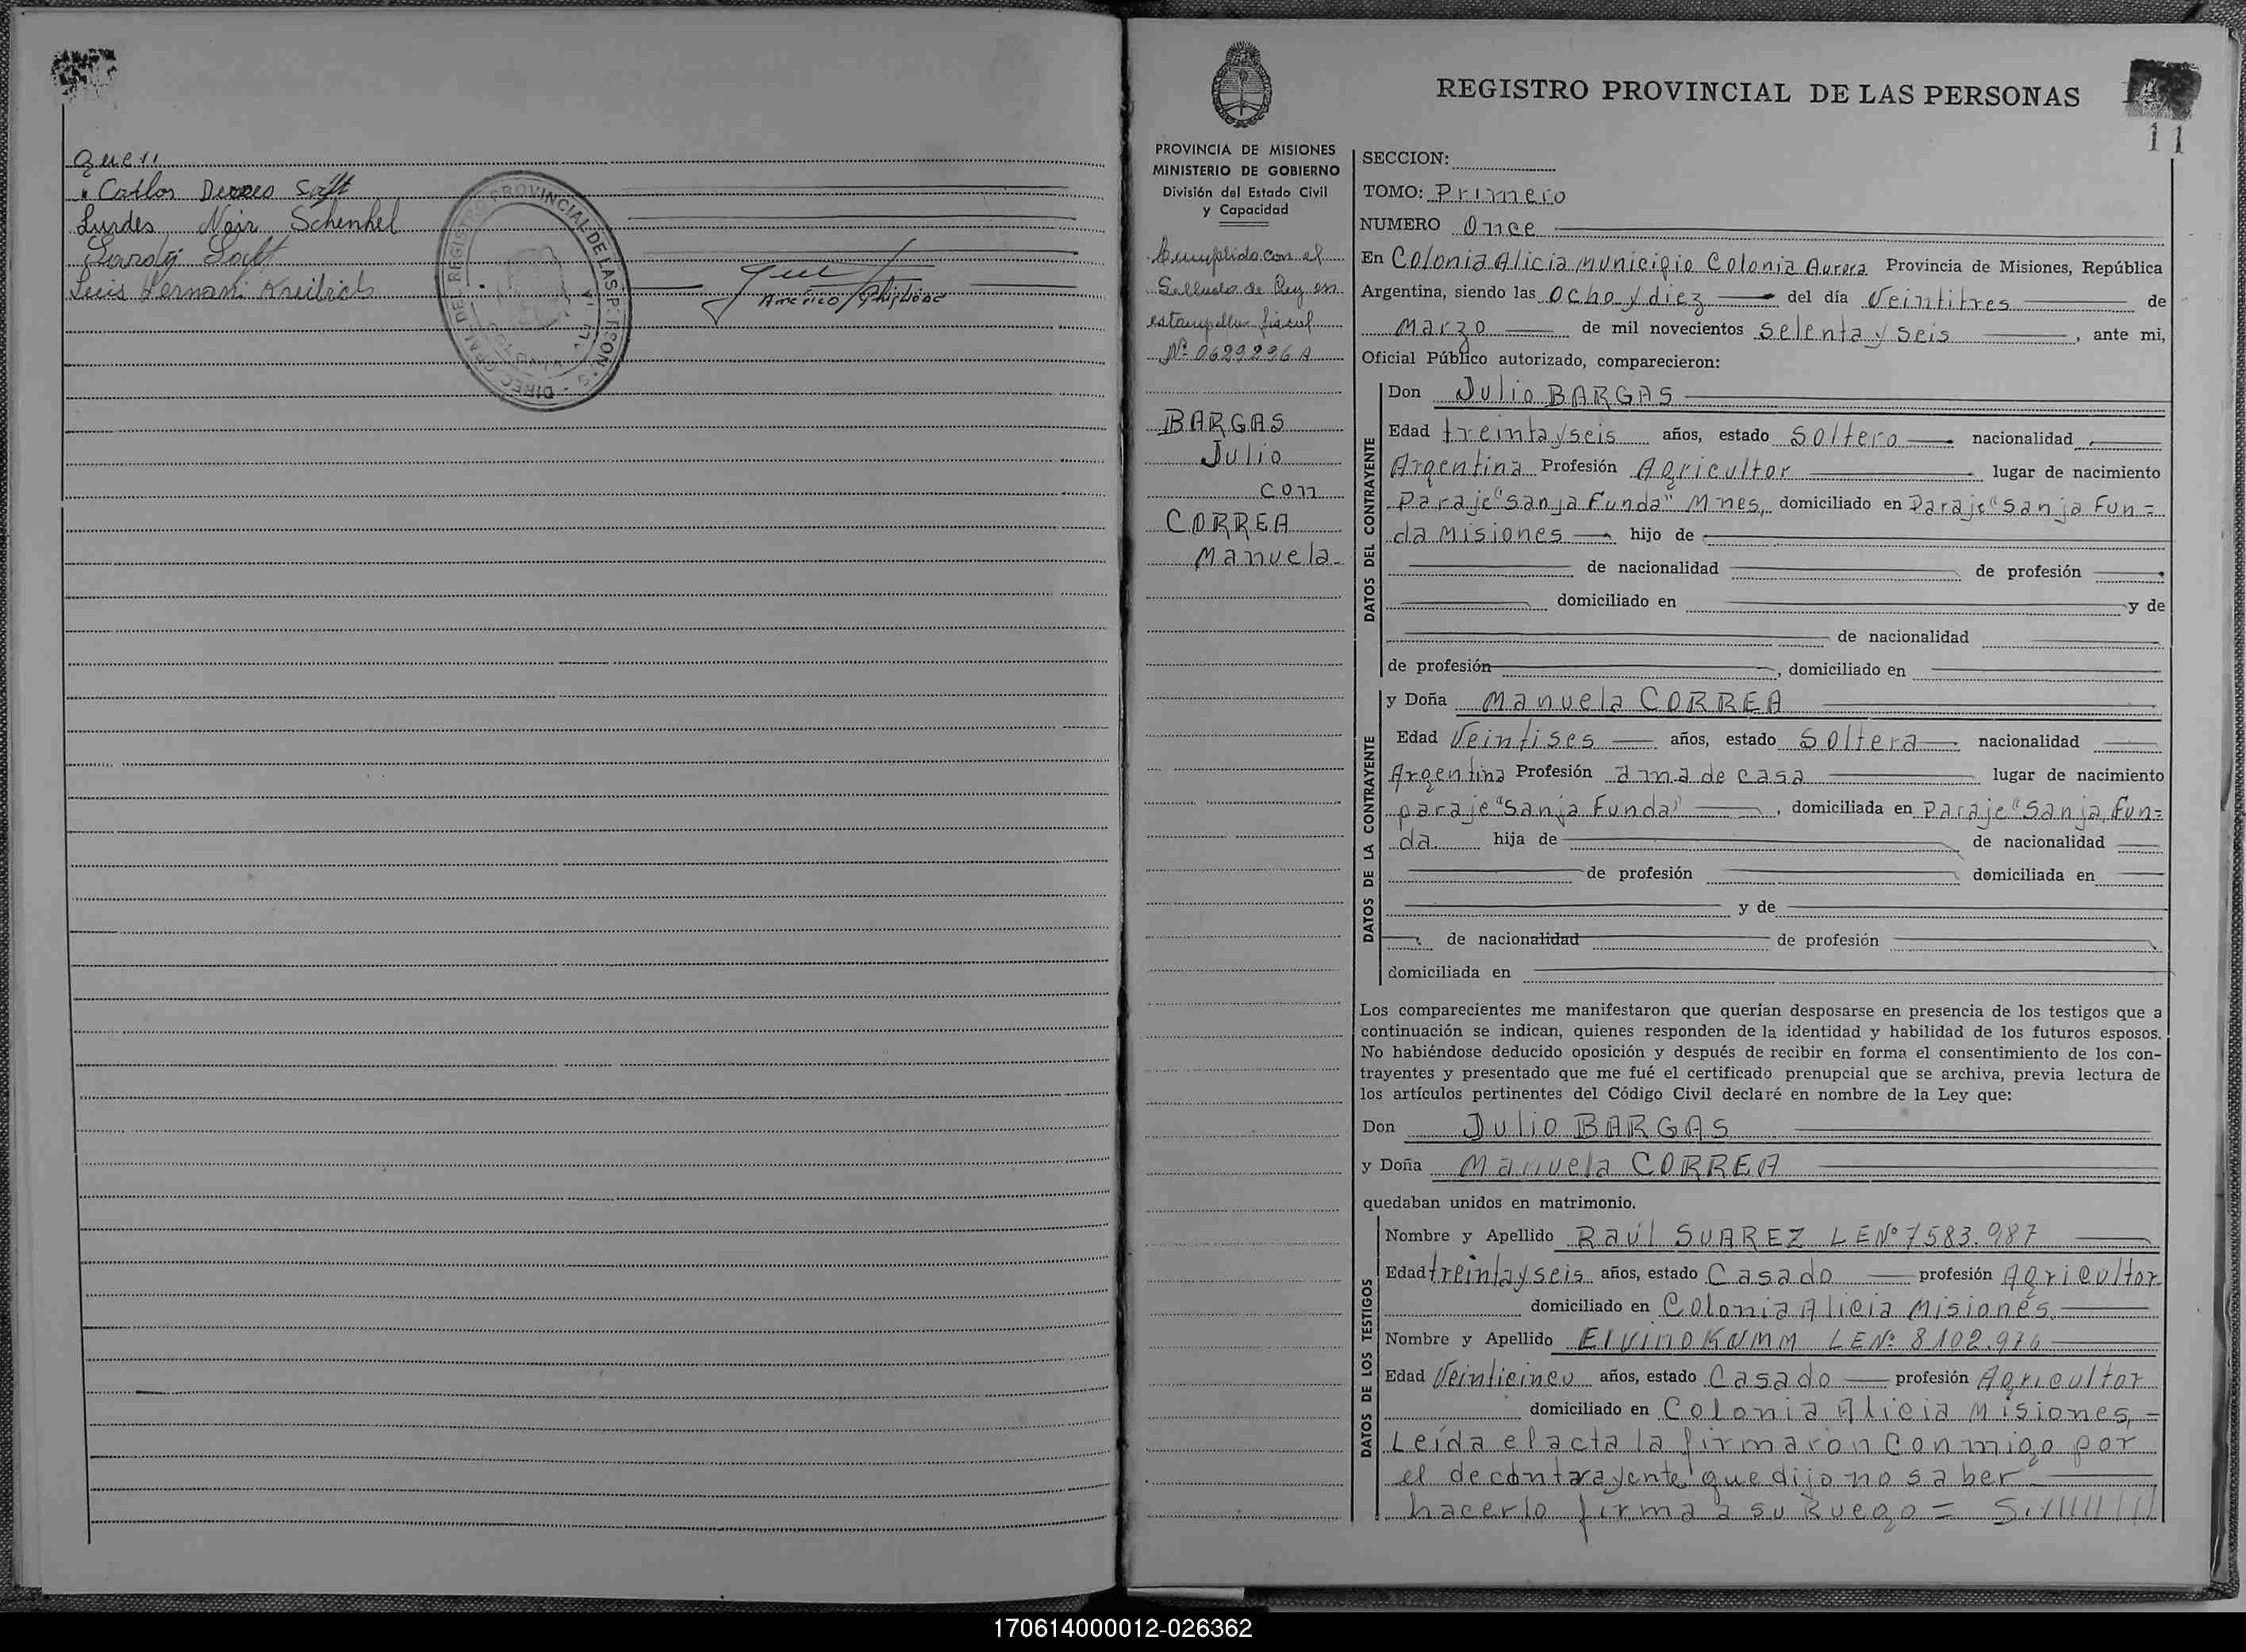 que //
Carlos
Lurdes Neir Schenkel
Luis Hernani Kreilich
Américo Ghiglione
REGISTRO PROVINCIAL DE LAS PERSONAS
11
PROVINCIA DE MISIONES
MINISTERIO DE GOBIERNO
División del Estado Civil
y Capacidad
Cumplido con el
Sellado de Ley en
estampilla fiscal
Nº 0629296 A
BARGAS
Julio
con
CORREA
Manuela
SECCION:
TOMO: Primero
NUMERO Once
En Colonia Alicia Municipio Colonia Aurora Provincia de Misiones, República
Argentina, siendo las Ocho y diez del día Veintitres de
Marzo de mil novecientos setenta y seis, ante mi,
Oficial Público autorizado, comparecieron:
DATOS DEL CONTRAYENTE
Don Julio BARGAS
Edad treinta y seis años, estado Soltero nacionalidad
Argentina Profesión Agricultor lugar de nacimiento
Paraje "Sanja Funda" Mnes, domiciliado en Paraje "Sanja Fun=
da Misiones hijo de
de nacionalidad de profesión
domiciliado en y de
de nacionalidad
de profesión , domiciliado en
DATOS DE LA CONTRAYENTE
y Doña Manuela CORREA
Edad Veintises años, estado Soltera nacionalidad
Argentina Profesión ama de casa lugar de nacimiento
paraje "Sanja Funda" , domiciliada en Paraje "Sanja Fun=
da hija de de nacionalidad
de profesión domiciliada en
y de
de nacionalidad de profesión
domiciliada en
Los comparecientes me manifestaron que querían desposarse en presencia de los testigos que a
continuación se indican, quienes responden de la identidad y habilidad de los futuros esposos.
No habiéndose deducido oposición y después de recibir en forma el consentimiento de los con-
trayentes y presentado que me fué el certificado prenupcial que se archiva, previa lectura de
los artículos pertinentes del Código Civil declaré en nombre de la Ley que:
Don Julio BARGAS
y Doña Manuela CORREA
quedaban unidos en matrimonio.
DATOS DE LOS TESTIGOS
Nombre y Apellido Raúl SUAREZ L E Nº 7583.987
Edad treinta y seis años, estado Casado profesión Agricultor
domiciliado en Colonia Alicia Misiones
Nombre y Apellido Elvino KNMM L E Nº 8102.976
Edad Veinticinco años, estado Casado profesión Agricultor
domiciliado en Colonia Alicia Misiones, =
Leída el acta la firmaron conmigo por
el de contrayente que dijo no saber
hacerlo firma a su Ruego =
170614000012-026362